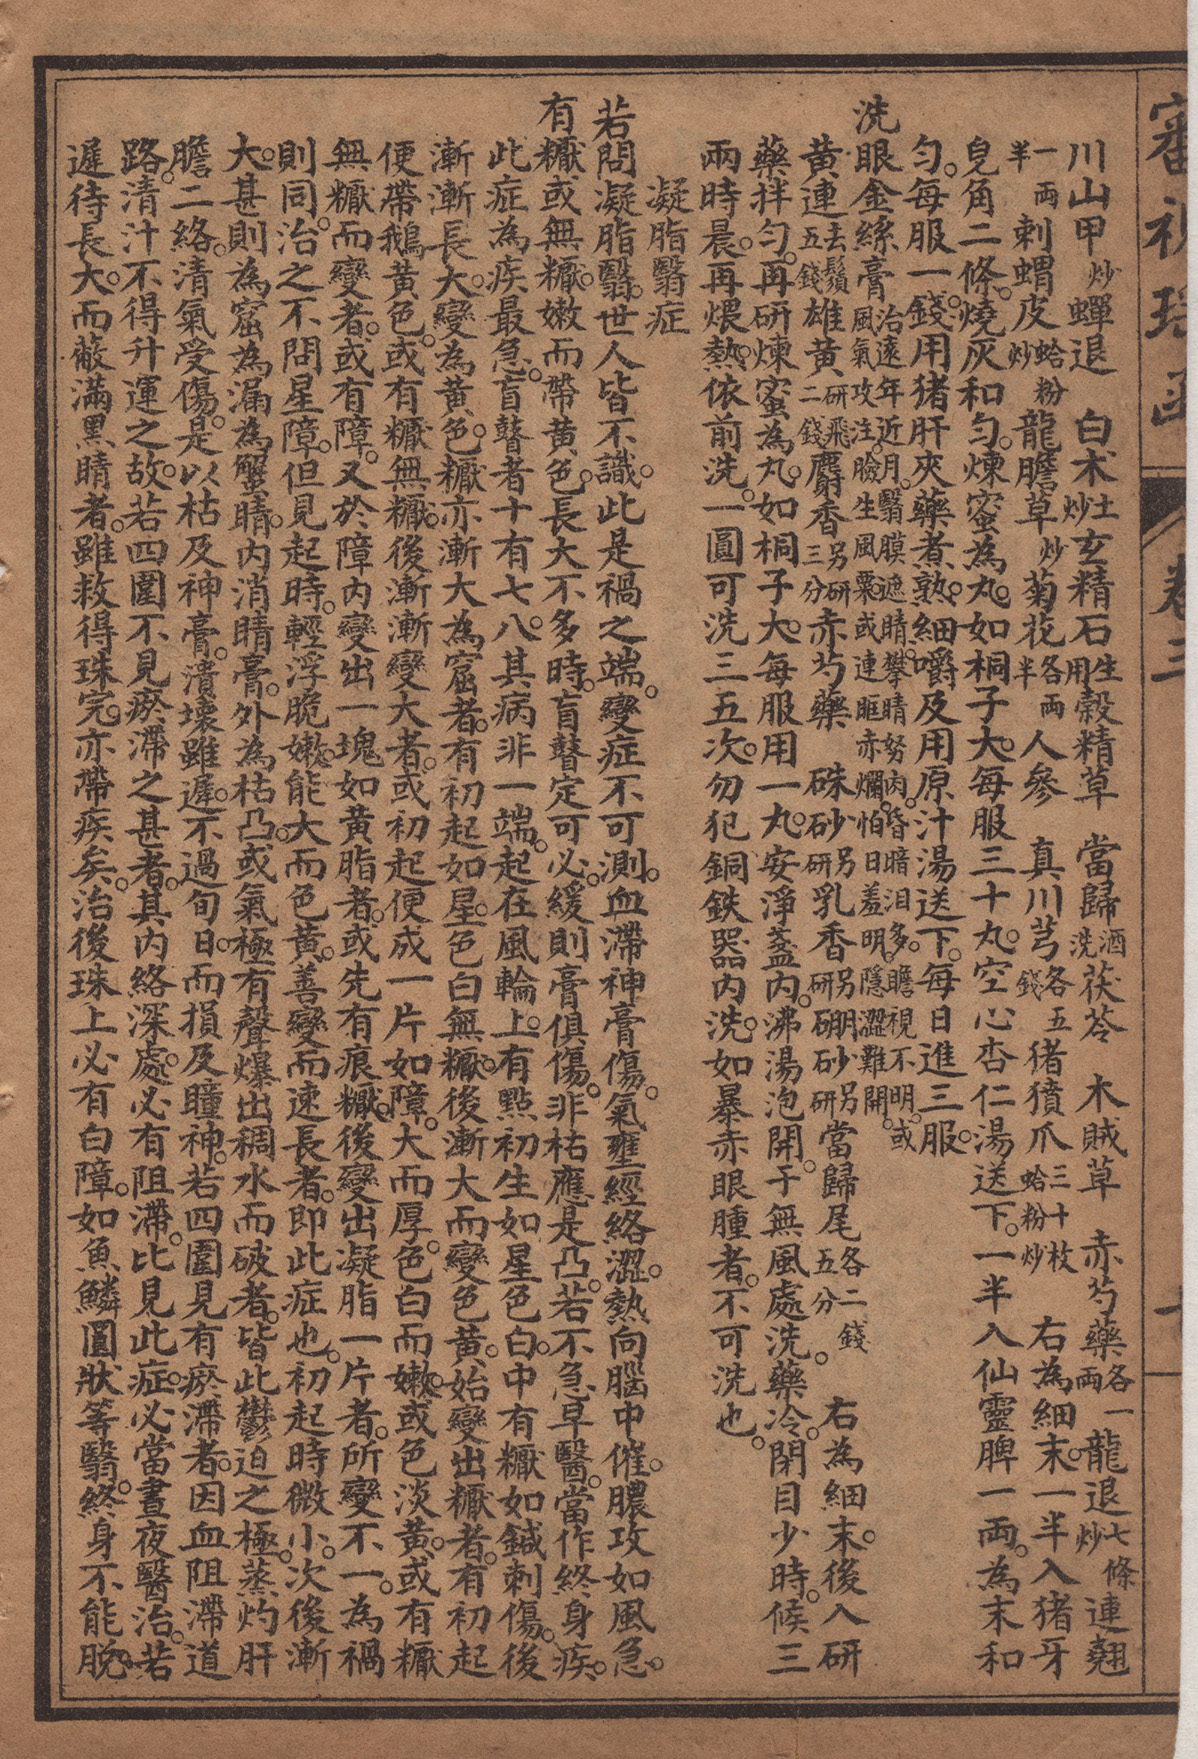 審視瑤函 卷三
川山甲炒蟬退 白术土炒玄精石生用穀精草 當歸酒洗茯苓 木賊草 赤芍藥各一兩龍退七條炒連翹
一兩半刺蝟皮蛤粉炒龍膽草炒菊花各半兩人參 真川芎各五錢猪猿爪三十枚蛤粉炒 右為細末。一半入猪牙
皂角二條。燒灰和勻。煉蜜為丸。如桐子大。每服三十丸。空心杏仁湯送下。一半入仙靈脾一兩。為末和
勻。每服一錢。用猪肝夾藥煮熟。細嚼及用原汁湯送下。每日進三服。
洗眼金絲膏治遠年近月。翳膜遮睛。攀睛努肉。昏暗泪多。瞻視不明。或風氣攻注。瞼生風粟。或連眶赤爛。怕日羞明。隱澀難開。
黄連去鬚五錢雄黄研飛二錢麝香另研三分赤芍藥 硃砂另研乳香另研硼砂另研當歸尾各二錢五分。 右為細末。後入研
藥拌勻。再研煉蜜為丸。如桐子大。每服用一丸。安淨盞內。沸湯泡開。于無風處洗。藥冷。閉目少時。候三
兩時晨。再煨熱。依前洗。一圓可洗三五次。勿犯銅鉄器內。洗如暴赤眼腫者。不可洗也。
凝脂翳症
若問凝脂翳。世人皆不識。此是禍之端。變症不可測。血滯神膏傷。氣壅經絡澀。熱向腦中催。膿攻如風急。
有糰或無糰。嫩而帶黄色。長大不多時。盲瞽定可必。緩則膏俱傷。非枯應是凸。若不急早醫。當作終身疾。
此症為疾最急。盲瞽者十有七八。其病非一端。起在風輪上。有點初生如星色白。中有糰如鍼刺傷。後
漸漸長大。變為黄色。糰亦漸大為窟者。有初起如星。色白無糰。後漸大而變色黄。始變出糰者。有初起
便帶鵝黄色。或有糰無糰。後漸漸變大者。或初起便成一片如障。大而厚。色白而嫩。或色淡黄。或有糰
無糰而變者。或有障。又於障內變出一塊如黄脂者。或先有痕糰。後變出凝脂一片者。所變不一。為禍
則同。治之不問星障。但見起時。輕浮脆嫩。能大而色黄。善變而速長者。即此症也。初起時微小。次後漸
大。甚則為窟為漏。為蟹睛。內消睛膏。外為枯凸。或氣極有聲。爆出稠水而破者。皆此鬱迫之極。蒸灼肝
膽二絡。清氣受傷。是以枯及神膏。潰壞雖遲。不過旬日。而損及瞳神。若四圍見有瘀滯者。因血阻滯道
路。清汁不得升運之故。若四圍不見瘀滯之甚者。其內絡深處。必有阻滯。比見此症。必當晝夜醫治。若
遲待長大。而蔽滿黑睛者。雖救得珠完。亦帶疾矣。治後珠上必有白障。如魚鱗圓狀等翳。終身不能脫。